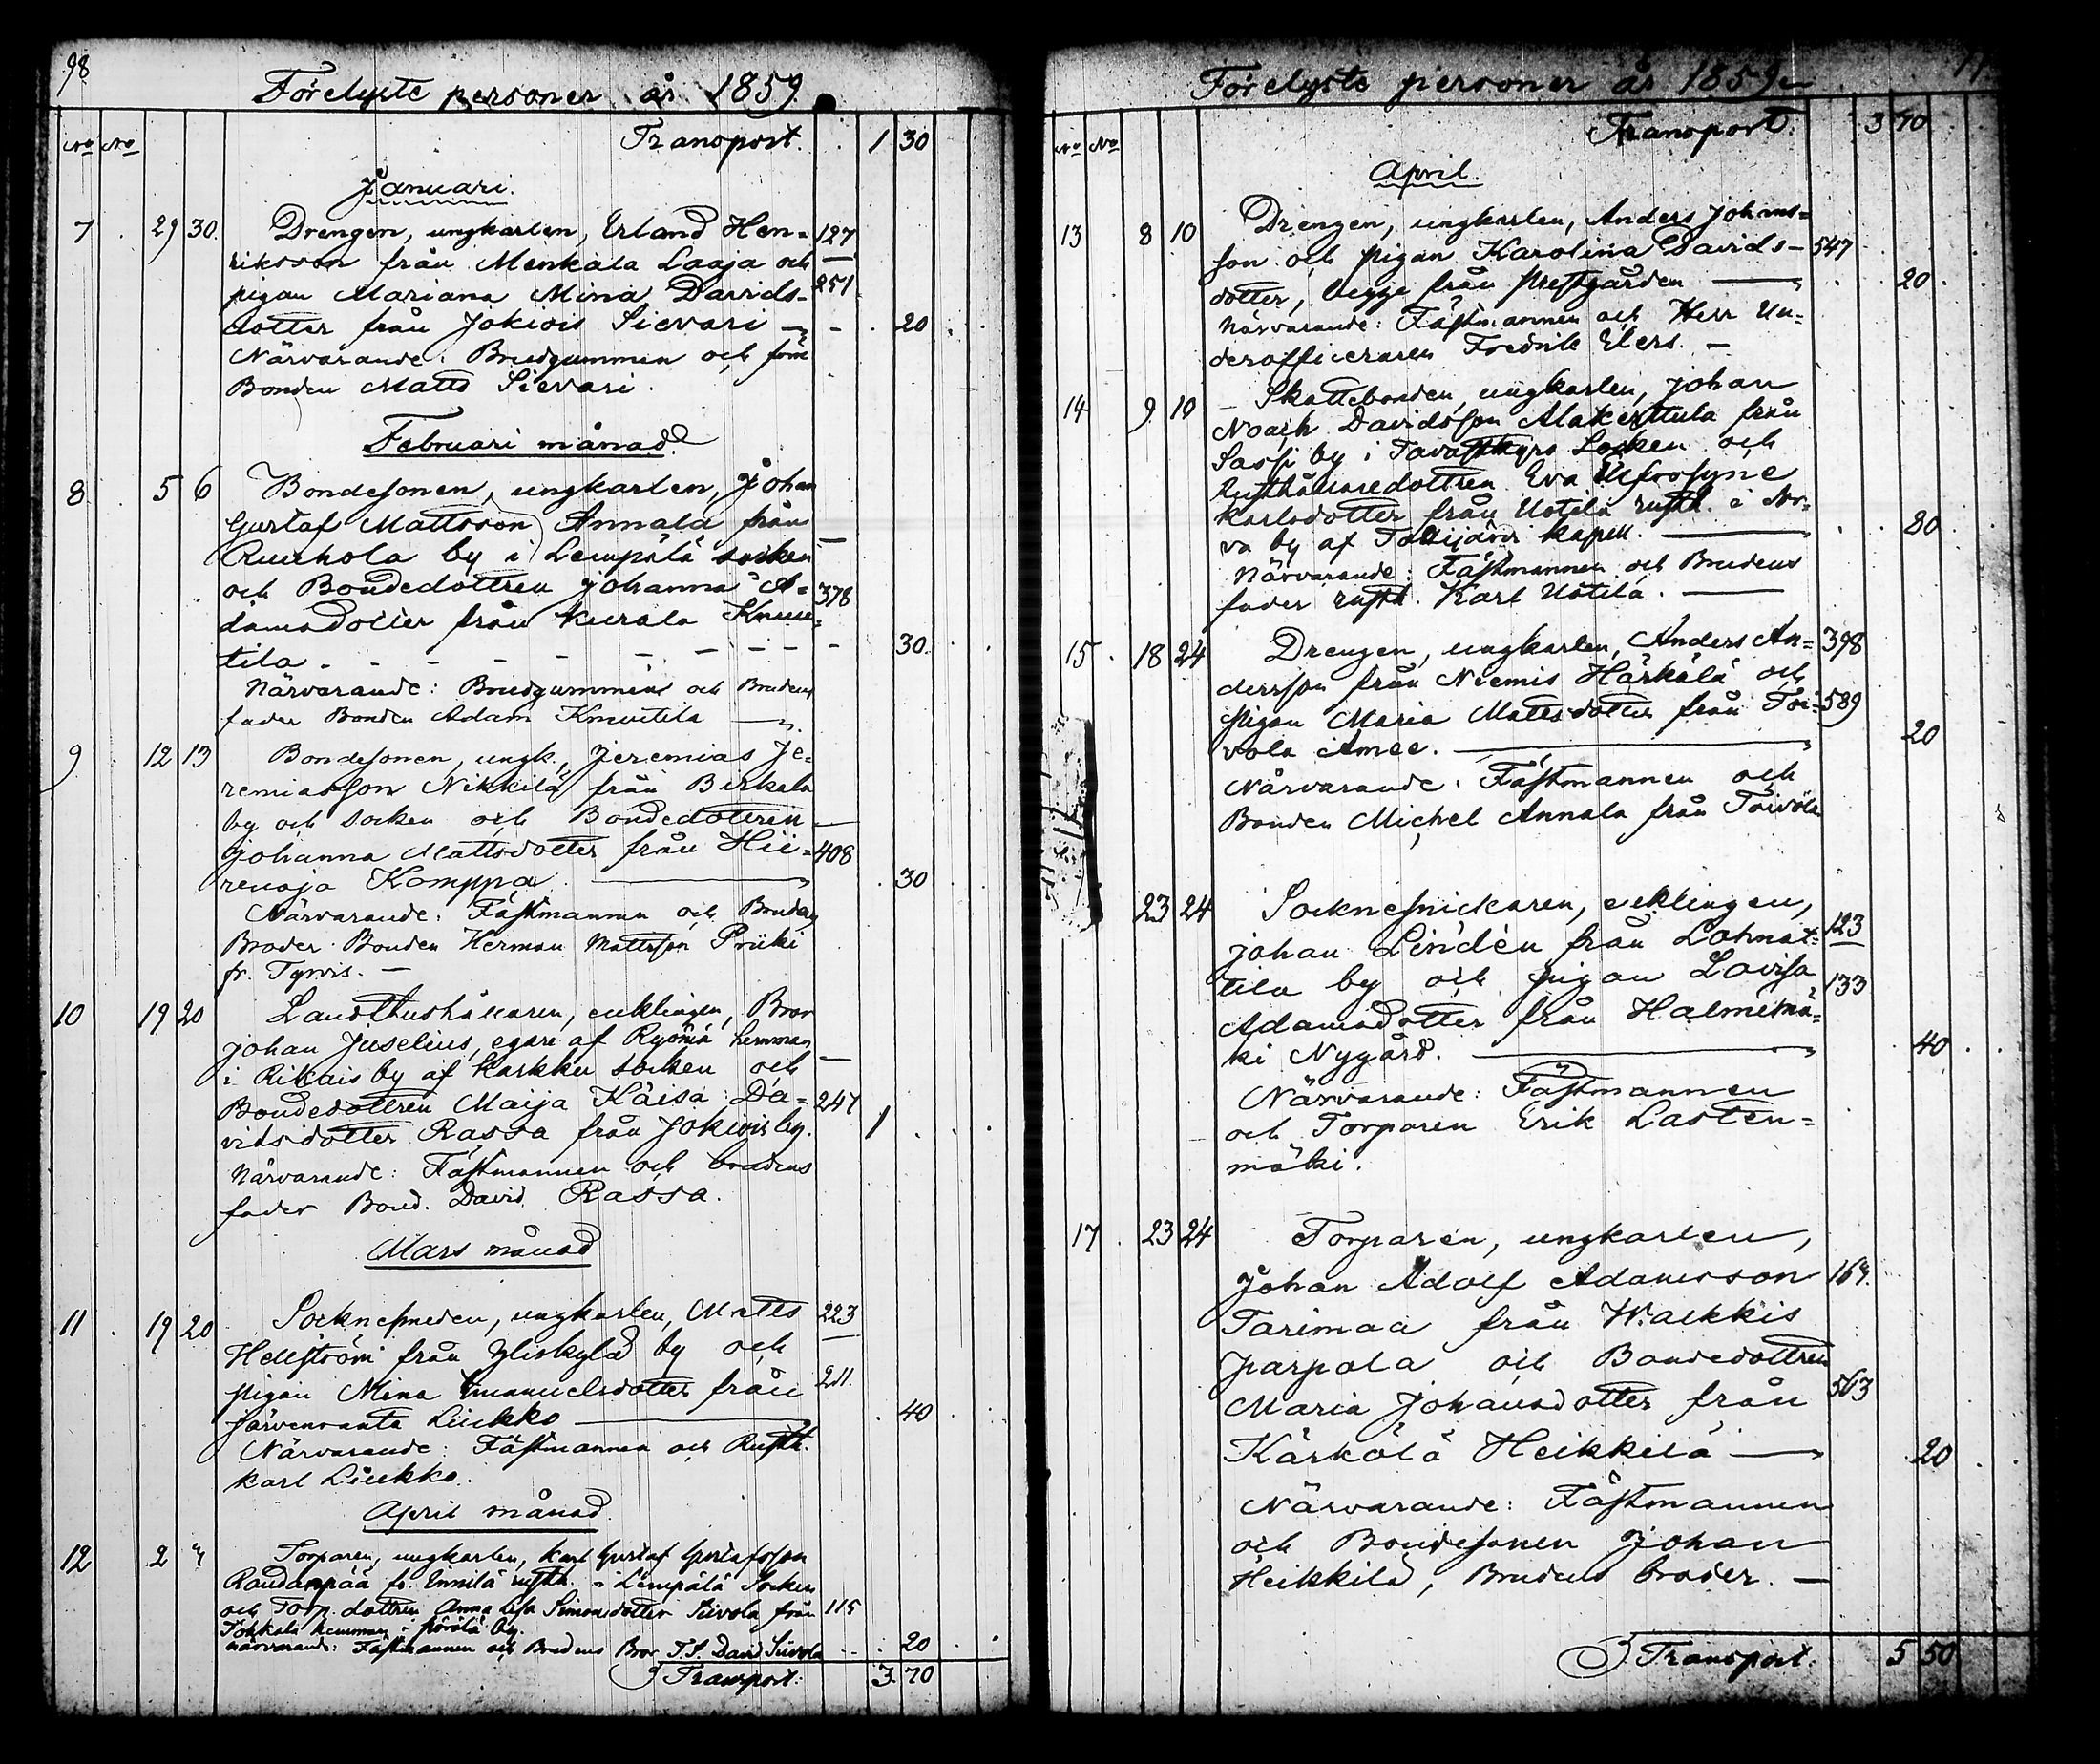 98
Förelyste personer år 1859.
No No Transport. 1 30
Januari.
7 29 30. Drengen, ungkarlen, Erland Hen= 127
riksson från Menkala Laaja och
pigan Mariana Mina Davids- 251
dotter från Jokiois Sievari 20
Närvarande: Brudgummen och förre
Bonden Matts Sievari.
Februari månad.
8 5 6 Bondesonen, ungkarlen, Johan
Gustaf Mattsson Annala från
by i Lempälä socken
och Bondedottren Johanna A= 378
damsdotter från Kurala Knuu=
tila - - - - - - - - - 30.
Närvarande: Brudgummen och Brudens
fader Bonden Adam Knuutila
9 12 13 Bondesonen, ungk., Jeremias Je=
remiasson Nikkilä från Birkala
by och socken och Bondedottren
Johanna Mattsdotter från Hii= 408
renoja Komppa. 30
Närvarande: Fästmannen och Brudens
Broder Bonden Herman Mattsson Priiki
fr. Tyrvis. -
10 19 20 enklingen, Bror
Johan Juselius, egare af hemman
i by af Karkku socken och
Bondedottren Maija Kaisa Da= 247
vidsdotter Rassa från Jokiois by. 1
Närvarande: Fästmannen och brudens
fader Bond. David Rassa.
Mars månad
11 19 20 Socknesmeden, ungkarlen, Matts 223
Hellström från Yliskylä by och
pigan Mina Emanuelsdotter från 211.
Järvenranta Liukko 40
Närvarande: Fästmannen och Rusth.
Karl Liukko.
April månad.
12 2 " Torparen, ungkarlen, Karl Gustaf Gustafsson
Raudanpää fr. rusth. i Lempälä Socken
och Torp. dottren Anna Lisa Simonsdotter Siivola från 115
hemman i by.
närvarande: Fästmannen och Brudens Bror T.S. David Siivola 20
Transport: 3. 70
Förelyste personer år 1859
No No Transport. 3 70
April.
13 8 10 Drengen, ungkarlen, Anders Johans=
son och pigan Karolina Davids- 547
dotter, begge från Prestgården 20
Närvarande: Fästmannen och Herr Un=
derofficeraren Fredrik Elers. -
14 9 10 Skattebonden, ungkarlen, Johan
Noach Davidsson Alakerttula från
Sassi by i Tavastkyro Socken och
Rusthållaredottren Eva Eufrosyne
Karlsdotter från Uotila rusth. i
va by af Tottijärvi kapell. 80
Närvarande: Fästmannen och Brudens
fader rusth. Karl Uotila.
15 18 24 Drengen, ungkarlen, Anders An= 398
dersson från Niemis Härkälä och
pigan Maria Mattsdotter från Toi= 589
vola Amee. 20
Närvarande: Fästmannen och
Bonden Michel Annala från Toivola
23 24 Socknesnickaren, enklingen,
Johan Lindén från Lohnat= 123
tila by och pigan Lovisa 133
Adamsdotter från Halmemä=
ki Nygård. 40
Närvarande: Fästmannen
och Torparen Erik Lasten=
mäki.
17 23 24 Torparen, ungkarlen,
Johan Adolf Adamsson 167.
Tarimaa från Walkkis
Parpola och Bondedottren
Maria Johansdotter från 563
Kärkölä Heikkilä 20
Närvarande: Fästmannen
och Bondesonen Johan
Heikkilä, Brudens broder. -
Transport. 5 50